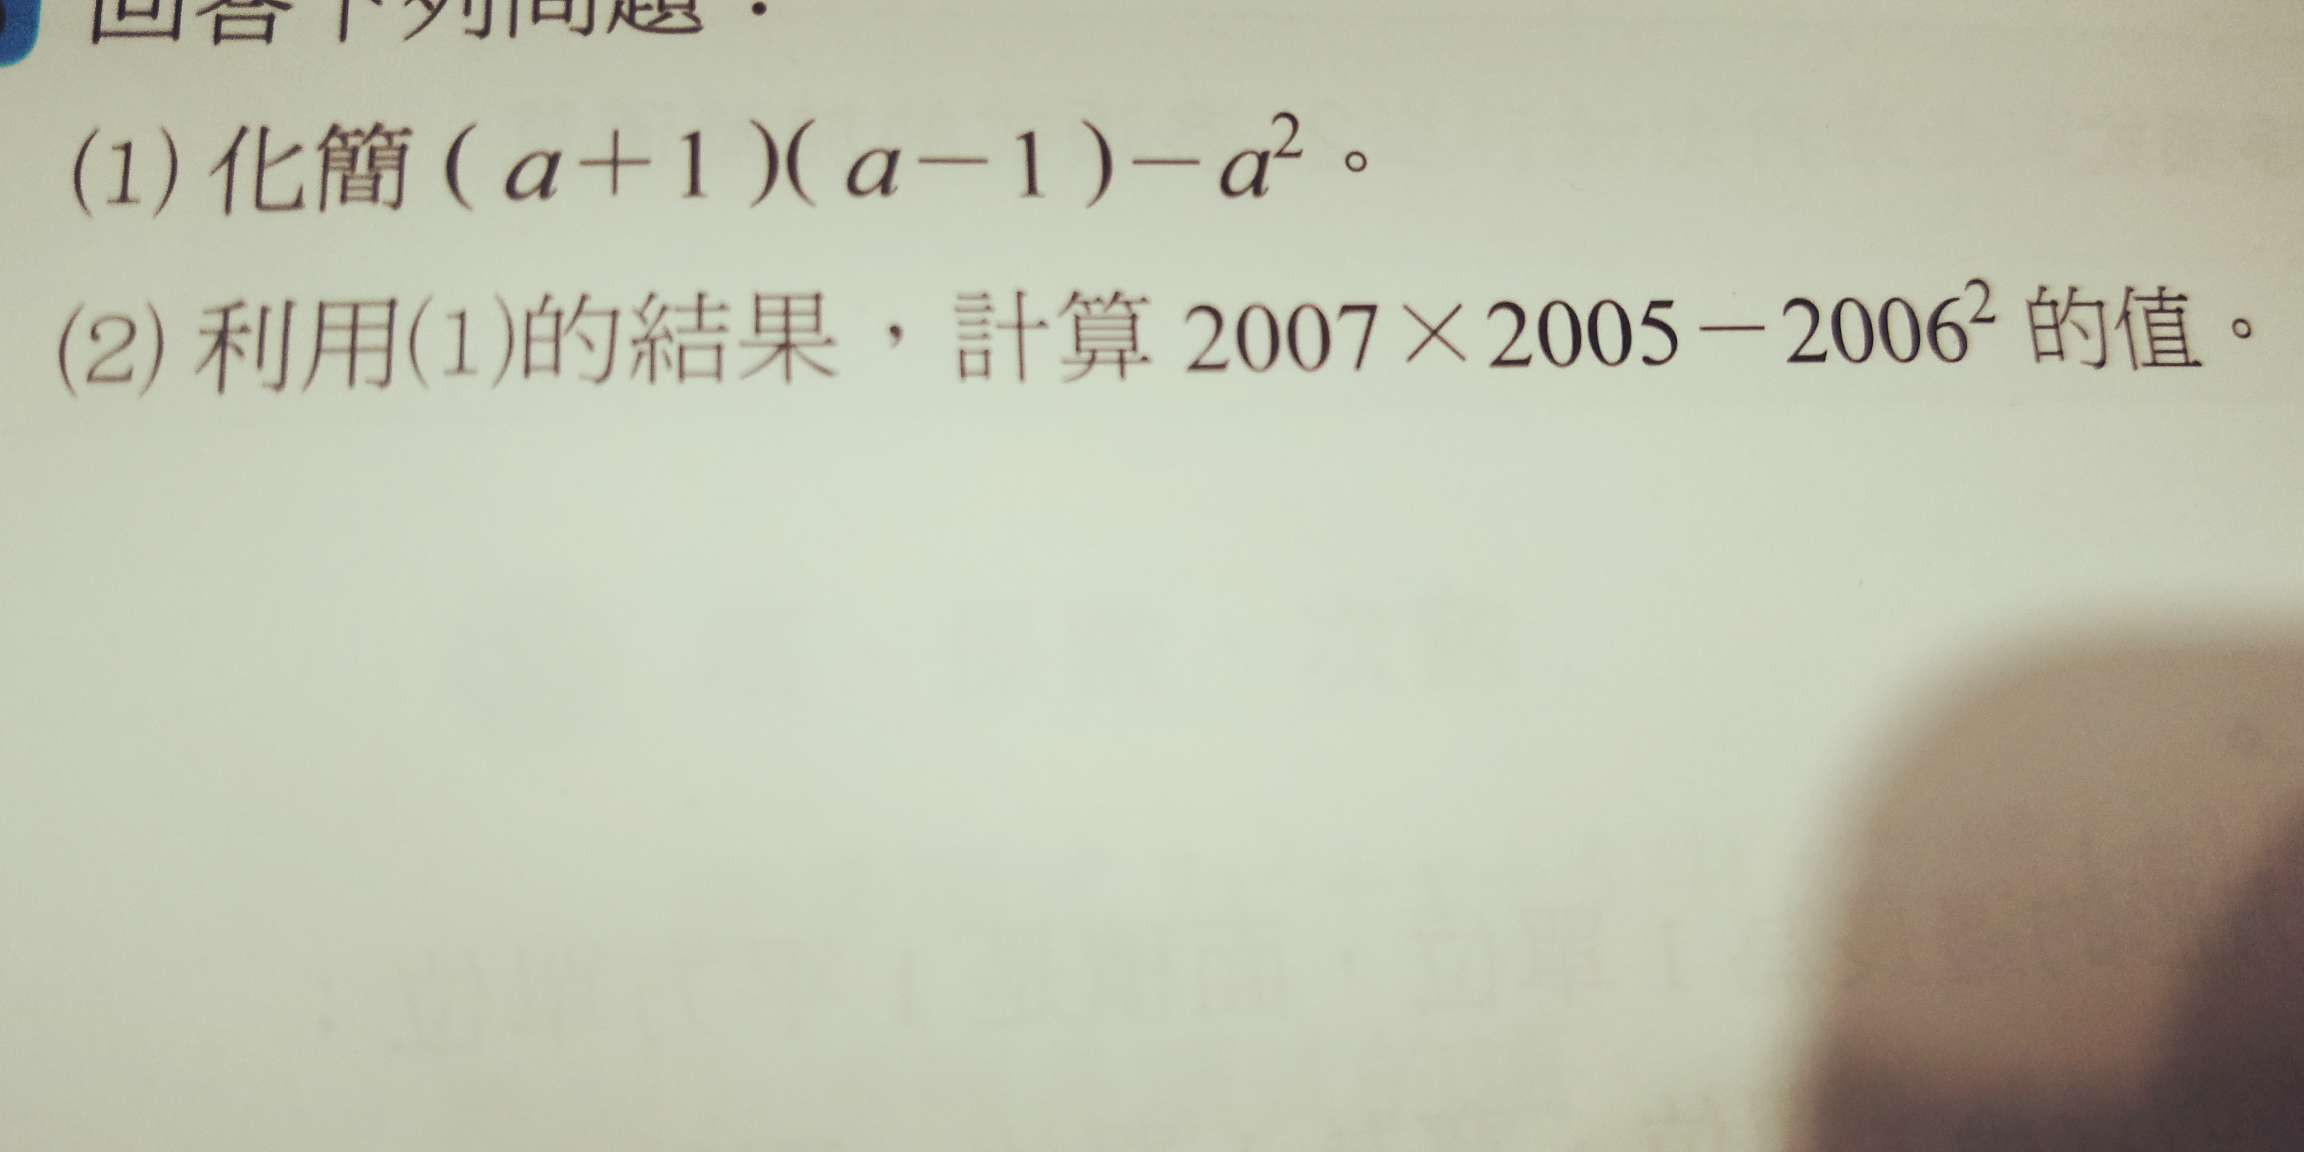 回答下列問題：
(1) 化簡 ( a＋1 )( a－1 )－a²。
(2) 利用(1)的結果，計算 2007×2005－2006² 的值。